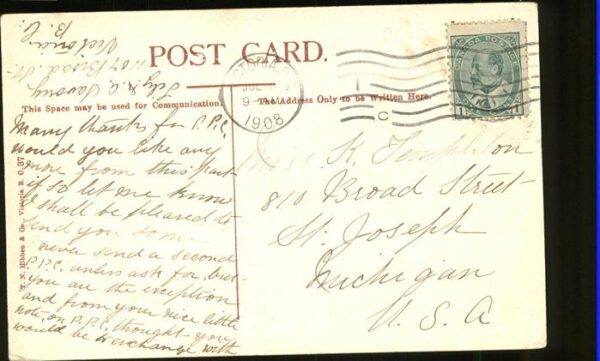 POST CARD.
This Space may be used for Communication.
The Address Only to be Written Here.
VICTORIA, B.C.
JUL
9-
1908
C
CANADA POSTAGE
1 1
Many thanks for P.P.C.
would you like any
more from this part
if so let me know
I shall be pleased to
send you some
never send a second
P.P.C. unless ask for, but
you are the exception
and from your nice little
note on P.P.C. thought you
would be exchange with
A.
Broad St.
Victoria
B.C.
Miss K. Templeton
810 Broad Street
St. Joseph
Michigan
U.S.A
T. N. Hibben & Co., Victoria B. C. 37